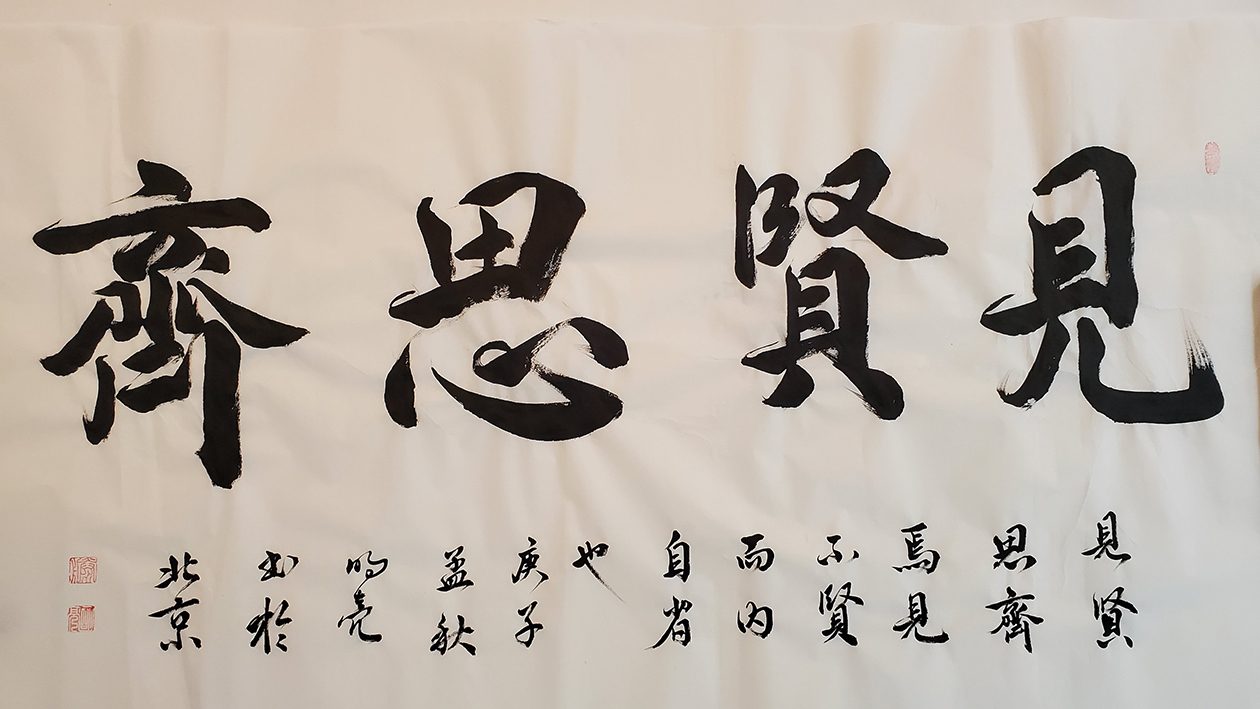 見賢思齊
見賢
思齊
焉見
不賢
而内
自省
也
庚子
孟秋
明亮
书於
北京